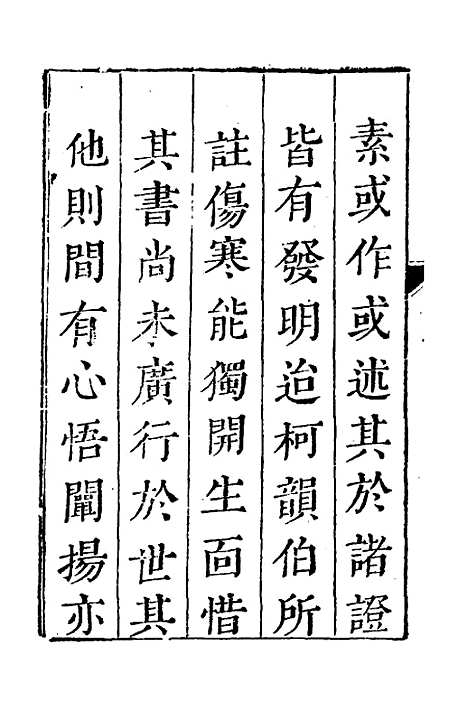 素或作或述其於諸證
皆有發明迨柯韻伯所
註傷寒能獨開生面惜
其書尚未廣行於世其
他則間有心悟闡揚亦